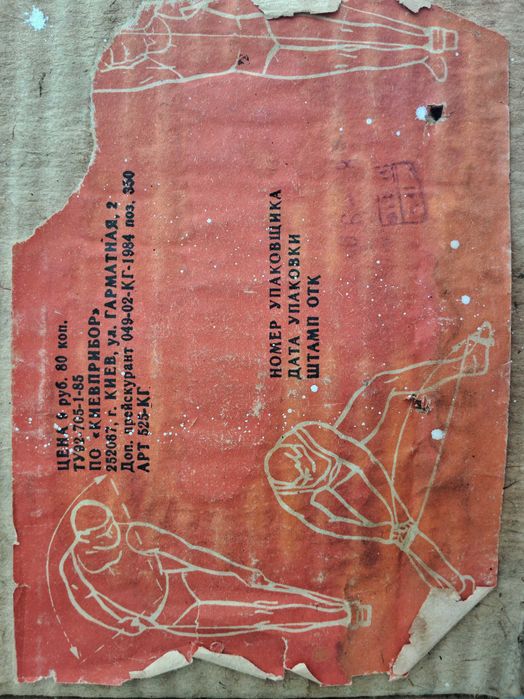 ЦЕНА 9 руб. 80 коп.
ТУ92-765-1-85
ПО «КИЕВПРИБОР»
252067, г. КИЕВ, ул. ГАРМАТНАЯ, 2
Доп. прейскурант 049-02-КГ-1984 поз. 350
АРТ 525-КГ
НОМЕР УПАКОВЩИКА
ДАТА УПАКОВКИ
ШТАМП ОТК